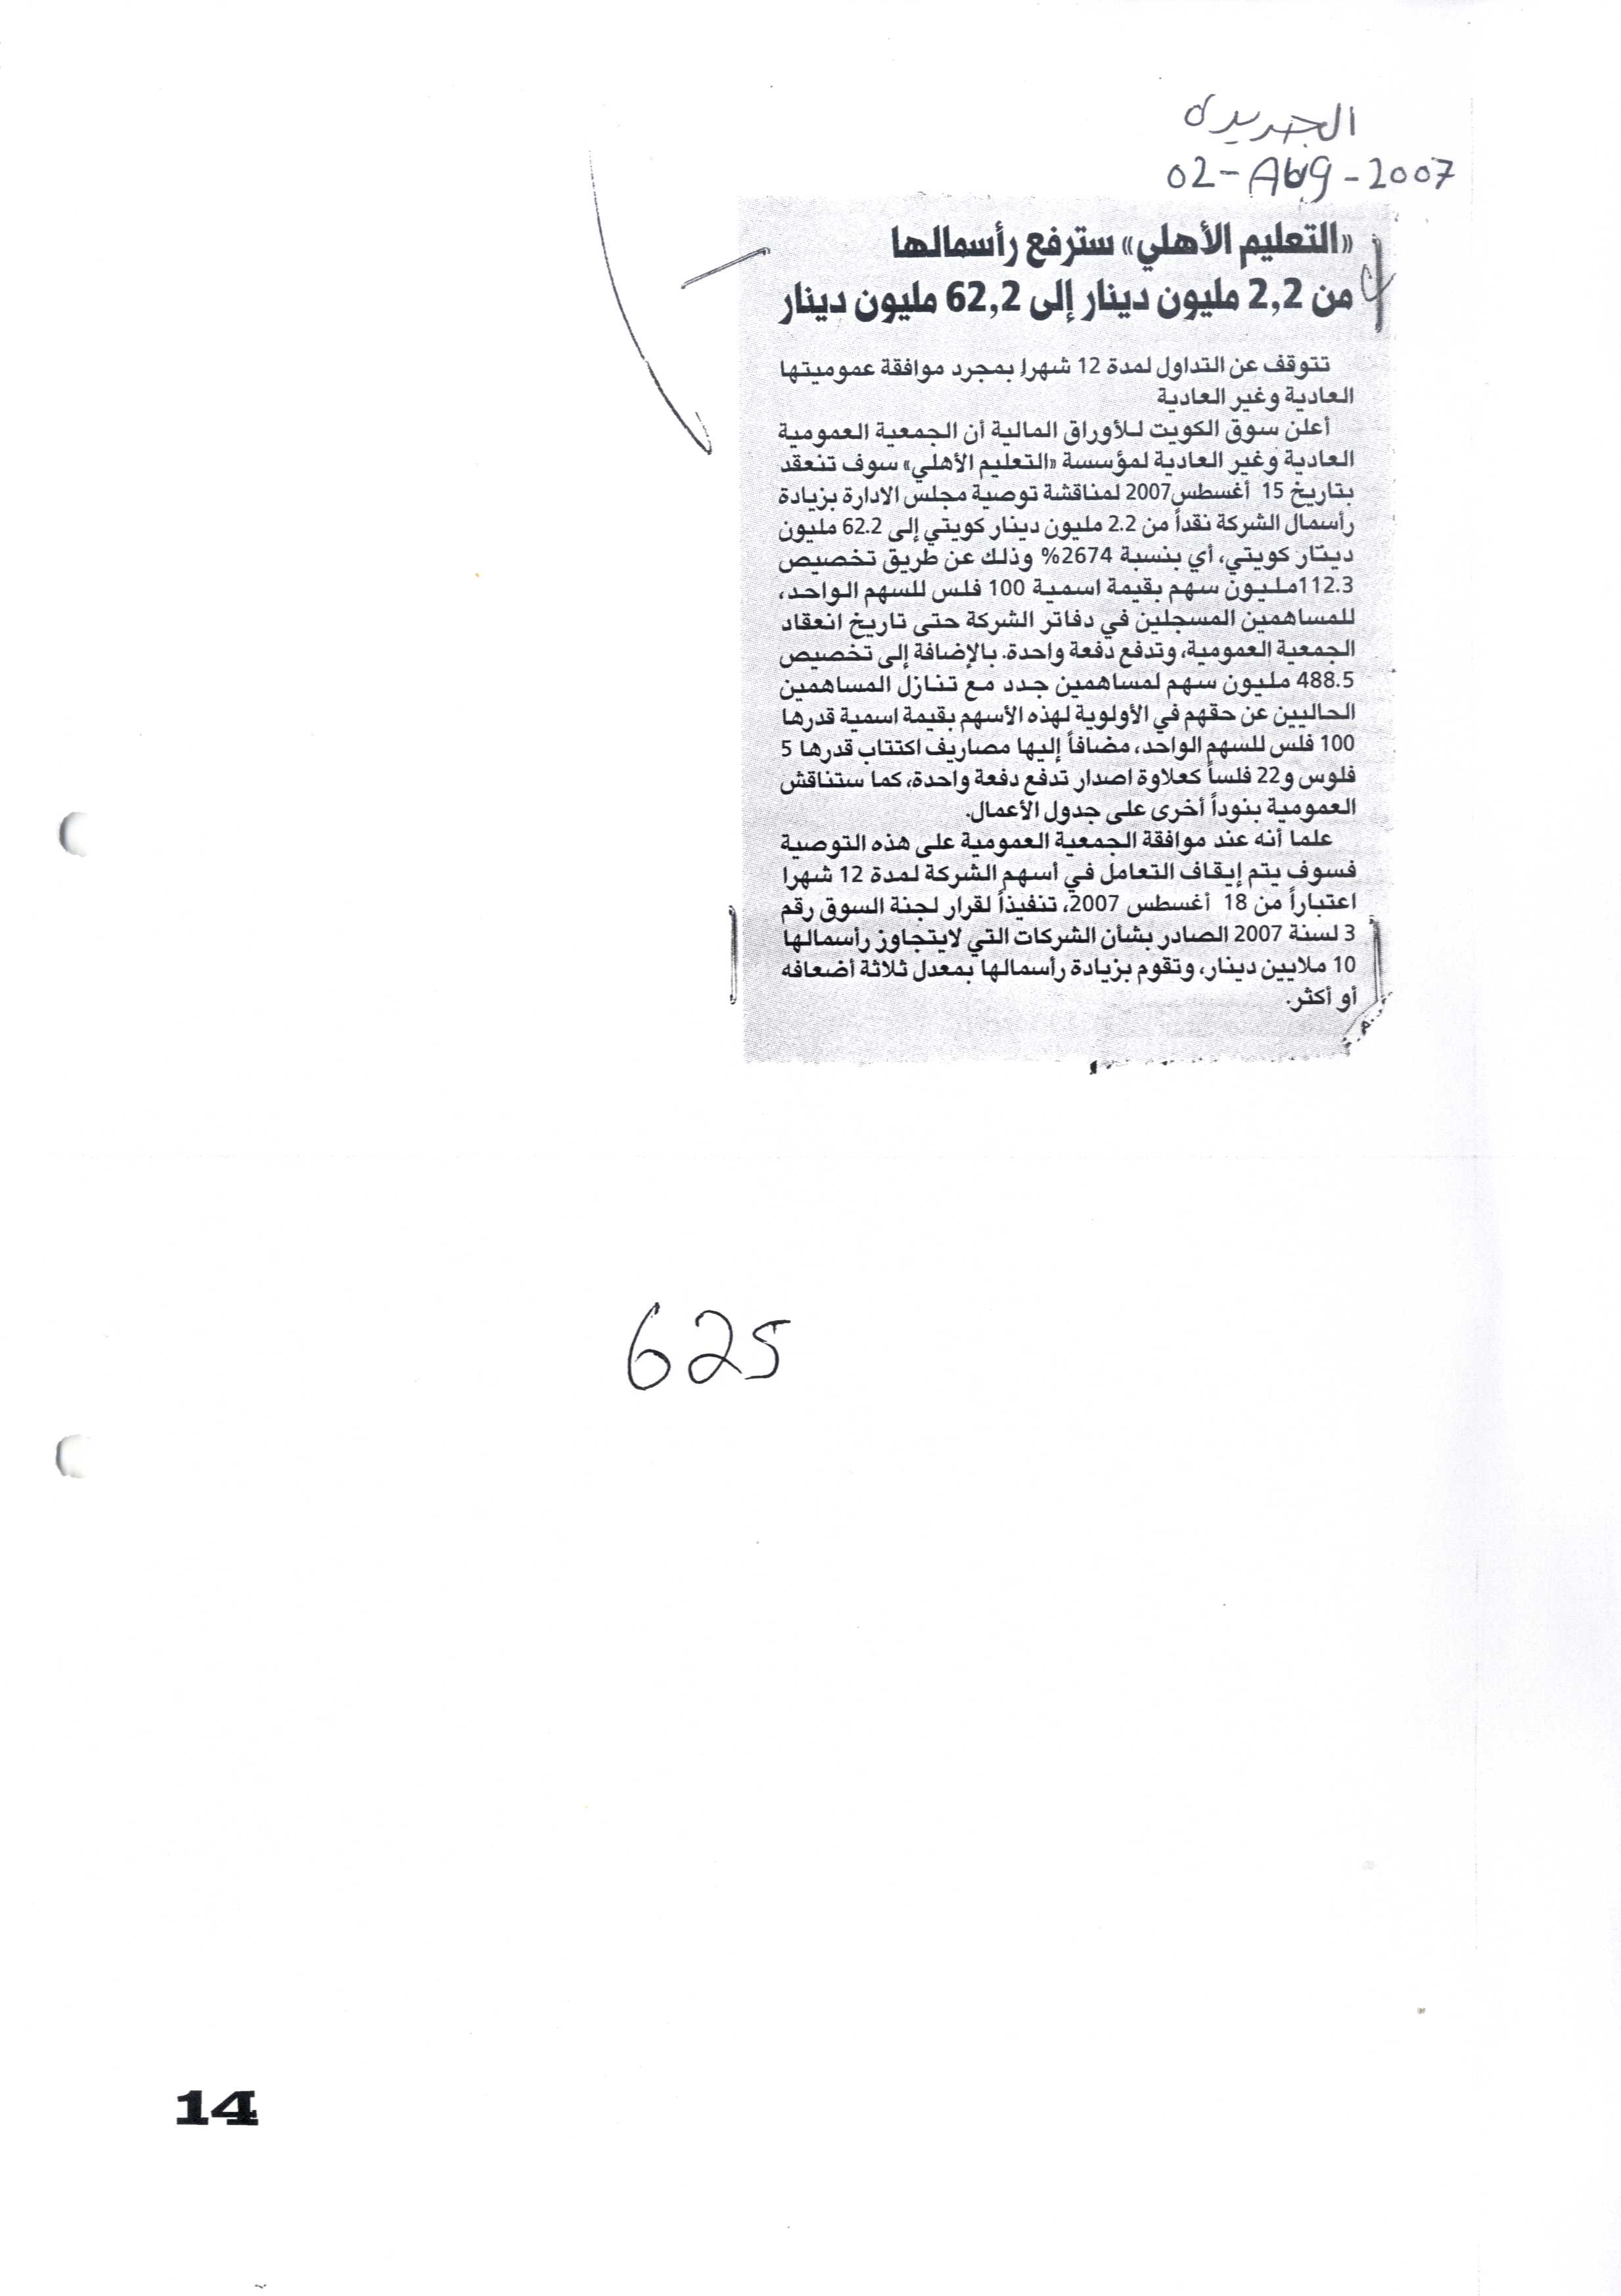 الجريدة
02-Aug-2007
«التعليم الأهلي» سترفع رأسمالها
من 2,2 مليون دينار إلى 62,2 مليون دينار
تتوقف عن التداول لمدة 12 شهرا بمجرد موافقة عموميتها
العادية وغير العادية
أعلن سوق الكويت للأوراق المالية أن الجمعية العمومية
العادية وغير العادية لمؤسسة «التعليم الأهلي» سوف تنعقد
بتاريخ 15 أغسطس2007 لمناقشة توصية مجلس الادارة بزيادة
رأسمال الشركة نقداً من 2.2 مليون دينار كويتي إلى 62.2 مليون
دينار كويتي، أي بنسبة 2674% وذلك عن طريق تخصيص
112.3مليون سهم بقيمة اسمية 100 فلس للسهم الواحد،
للمساهمين المسجلين في دفاتر الشركة حتى تاريخ انعقاد
الجمعية العمومية، وتدفع دفعة واحدة. بالإضافة إلى تخصيص
488.5 مليون سهم لمساهمين جدد مع تنازل المساهمين
الحاليين عن حقهم في الأولوية لهذه الأسهم بقيمة اسمية قدرها
100 فلس للسهم الواحد، مضافاً إليها مصاريف اكتتاب قدرها 5
فلوس و22 فلساً كعلاوة اصدار تدفع دفعة واحدة، كما ستناقش
العمومية بنوداً أخرى على جدول الأعمال.
علما أنه عند موافقة الجمعية العمومية على هذه التوصية
فسوف يتم إيقاف التعامل في أسهم الشركة لمدة 12 شهرا
اعتباراً من 18 أغسطس 2007، تنفيذاً لقرار لجنة السوق رقم
3 لسنة 2007 الصادر بشأن الشركات التي لايتجاوز رأسمالها
10 ملايين دينار، وتقوم بزيادة رأسمالها بمعدل ثلاثة أضعافه
أو أكثر.
625
14